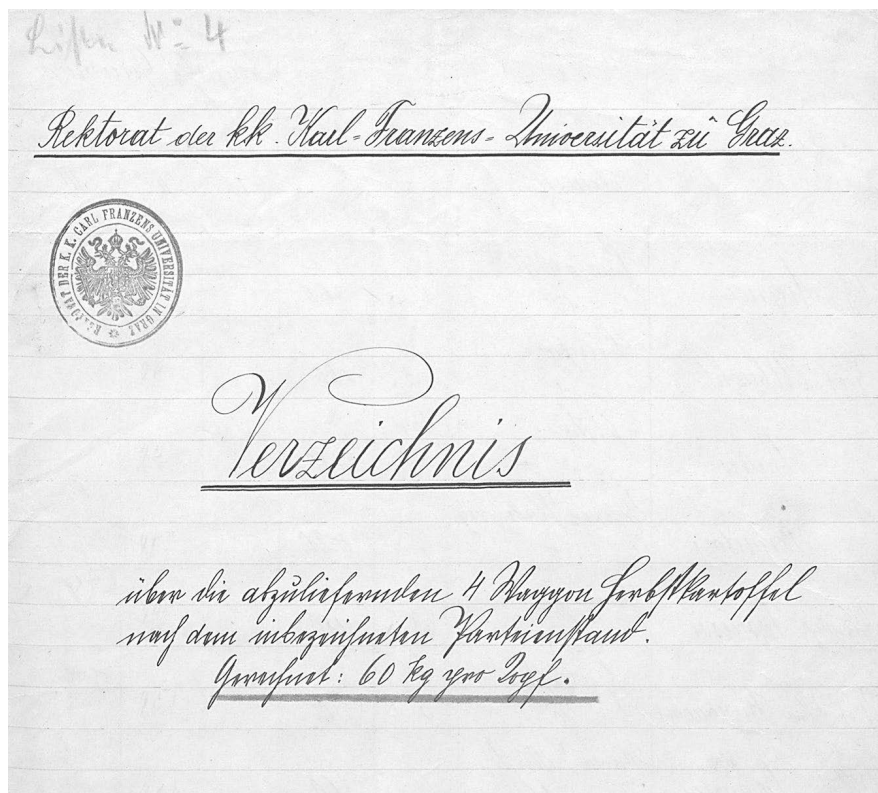 Liste № 4
Rektorat der kk. Karl-Franzens-Universität zu Graz.
REKTORAT DER K. K. CARL FRANZENS UNIVERSITÄT IN GRAZ
Verzeichnis
über die abzuliefernden 4 Waggon Herbstkartoffel
nach dem inbezeichneten Parteienstand.
Gerechnet: 60 kg pro Kopf.